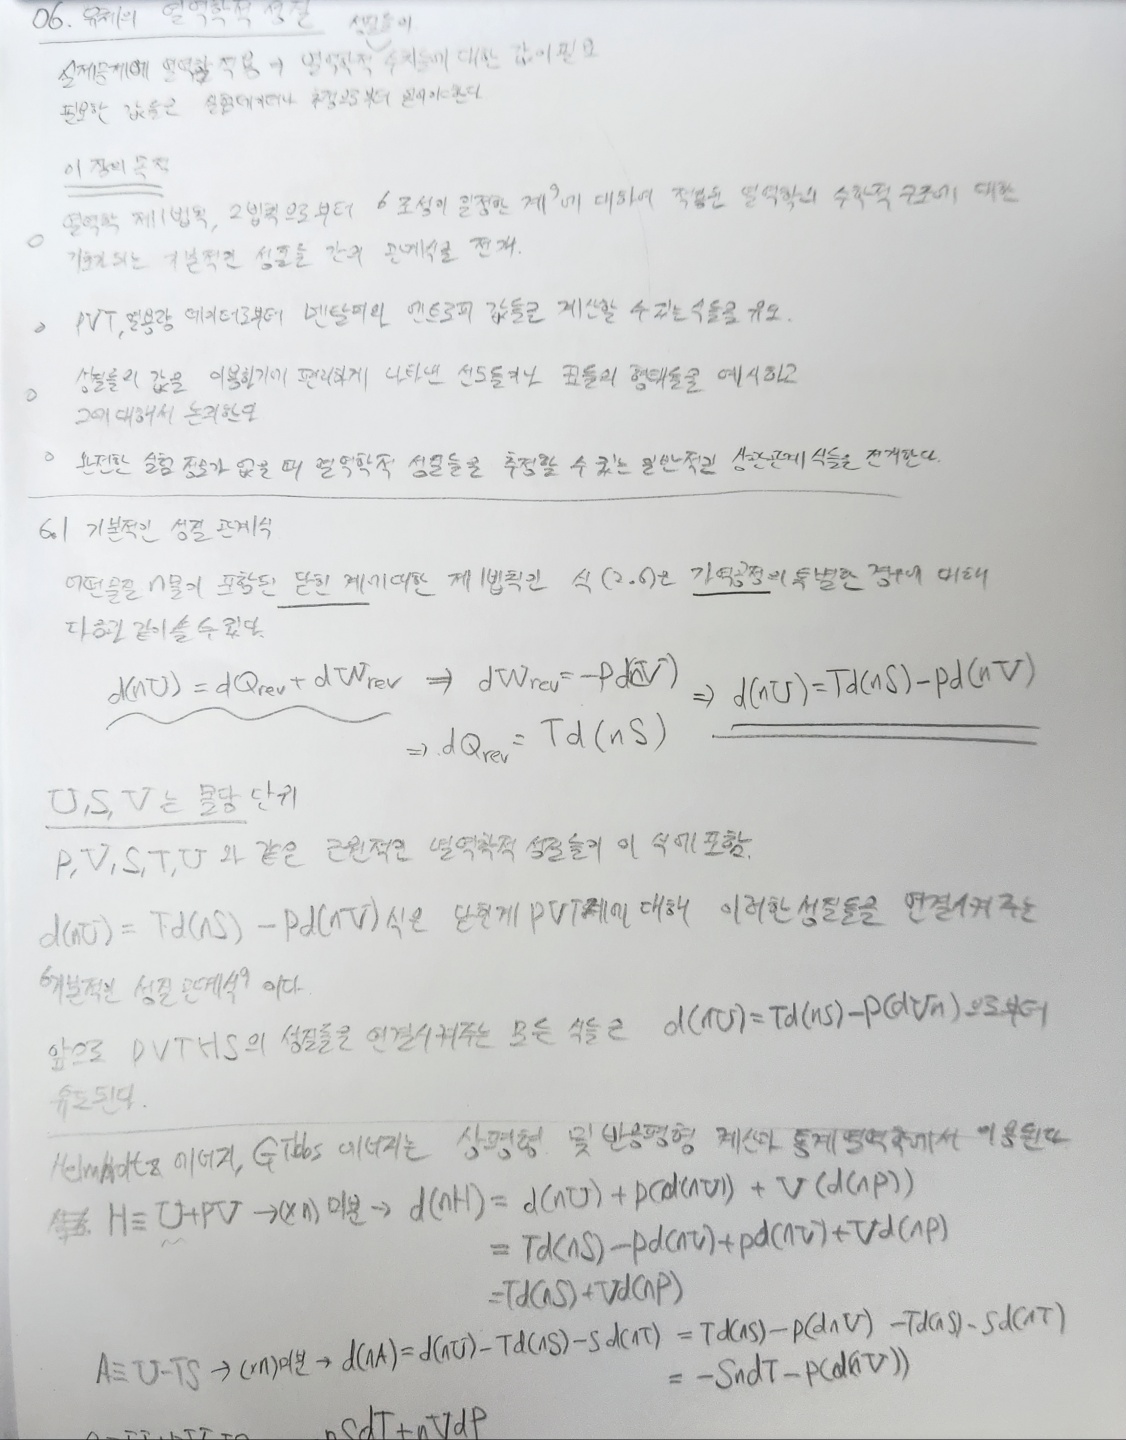 06. 유체의 열역학적 성질
성질들의
실제문제에 열역학 적용 → 열역학적 수치들에 대한 값이 필요
필요한 값들은 실험데이터나 추정으로부터 얻어야한다
이 장의 목적
열역학 제1법칙, 2법칙으로부터 6조성이 일정한 계9에 대하여 적용은 열역학의 수학적 구조에 대한
기초가 되는 기본적인 성질들 간의 관계식을 전개.
PVT, 열용량 데이터로부터 엔탈피와 엔트로피 값들을 계산할 수 있는 식들을 유도.
성질들의 값을 이용하기에 편리하게 나타낸 선도들이나 표들의 형태들을 예시하고
그에 대해서 논의한다
완전한 실험 정보가 없을 때 열역학적 성질들을 추정할 수 있는 일반적인 상관관계식들을 전개한다.
6.1 기본적인 성질 관계식
n몰이 포함된 닫힌 계에 대한 제1법칙인 식 (2.6)은 가역공정의 특별한 경우에 대해
다음과 같이 쓸 수 있다.
d(nU) = dQrev + dWrev ⇒ dWrev = -Pd(nV) ⇒ d(nU) = Td(nS) - pd(nV)
⇒ dQrev = Td(nS)
U, S, V는 몰당 단위
P, V, S, T, U 와 같은 근원적인 열역학적 성질들이 이 식에 포함.
d(nU) = Td(nS) - Pd(nV) 식은 닫힌계 PVT계에 대해 이러한 성질들을 연결시켜 주는
6기본적인 성질 관계식9 이다.
앞으로 PVTHS의 성질들을 연결시켜주는 모든 식들은 d(nU) = Td(nS) - P(dVn) 으로부터
유도된다.
Helmholtz 에너지, Gibbs 에너지는 상평형 및 반응평형 계산과 통계열역학에서 이용된다
H ≡ U+PV → (×n) 미분 → d(nH) = d(nU) + P(d(nV)) + V(d(nP))
= Td(nS) - Pd(nV) + pd(nV) + Vd(nP)
= Td(nS) + Vd(nP)
A ≡ U-TS → (×n)미분 → d(nA) = d(nU) - Td(nS) - Sd(nT) = Td(nS) - P(dnV) - Td(nS) - Sd(nT)
= -SndT - P(d(nV))
nSdT + nVdP